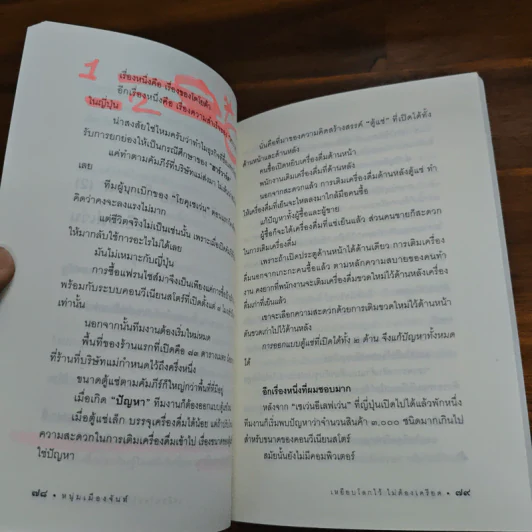 1
เรื่องหนึ่งคือ เรื่องของโตโยต้า
2
อีกเรื่องหนึ่งคือ เรื่องความสำเร็จของ
ในญี่ปุ่น
น่าสงสัยใช่ไหมครับว่าทำไมธุรกิจที่
รับการยกย่องให้เป็นกรณีศึกษาของ
แต่ทำตามคัมภีร์ที่บริษัทแม่ส่งมา ไม่
เลย
ทีมผู้บุกเบิกของ
คิดว่าคงจะลงแรงไม่มาก
แต่ชีวิตจริงไม่เป็นเช่นนั้น เพราะเมื่อเปิด
ให้มากลับใช้การอะไรไม่ได้เลย
มันไม่เหมาะกับญี่ปุ่น
การซื้อแฟรนไชส์มาจึงเป็นเพียงแค่การซื้อ
พร้อมกับระบบคอนวีเนียนสโตร์ที่เปิดตั้งแต่ ๗
เท่านั้น
นอกจากนั้นทีมงานต้องเริ่มใหม่หมด
พื้นที่ของร้านแรกที่เปิดคือ ๘๓ ตารางเมตร
ที่ร้านที่บริษัทแม่กำหนดไว้ถึงครึ่งหนึ่ง
ขนาดตู้แช่ตามคัมภีร์ก็ใหญ่กว่าพื้นที่ที่มีอยู่
เมื่อเกิด "ปัญหา" ทีมงานก็ต้องออกแบบตู้แช่
เมื่อตู้แช่เล็ก บรรจุเครื่องดื่มได้น้อย
ความสะดวกในการเติมเครื่องดื่มเข้าไป เรื่องขนาดของ
ใช่ปัญหา
๗๘ • หนุ่มเมืองจันท์
นั่นคือที่มาของความคิดสร้างสรรค์ "ตู้แช่" ที่เปิดได้ทั้ง
ด้านหน้าและด้านหลัง
คนซื้อเปิดหยิบเครื่องดื่มด้านหน้า
พนักงานเติมเครื่องดื่มที่ด้านหลัง
นอกจากสะดวกแล้ว การเติมเครื่องดื่มด้านหลังตู้แช่ ทำ
ให้เครื่องดื่มที่เย็นจะไหลลงมาใกล้มือคนซื้อ
แก้ปัญหาทั้งผู้ซื้อและผู้ขาย
ผู้ซื้อก็จะได้เครื่องดื่มที่แช่เย็นแล้ว ส่วนคนขายก็สะดวก
ในการเติมเครื่องดื่ม
เพราะถ้าเปิดประตูด้านหน้าได้ด้านเดียว การเติมเครื่อง
ดื่มนอกจากเกะกะคนซื้อแล้ว ตามหลักความสบายของคนทำ
งาน คงยากที่พนักงานจะเติมเครื่องดื่มขวดใหม่ไว้ด้านหลังเครื่อง
ดื่มเก่าที่เย็นแล้ว
เขาจะเลือกความสะดวกด้วยการเติมขวดใหม่ไว้ด้านหน้า
ดันขวดเก่าไปไว้ด้านหลัง
การออกแบบตู้แช่ที่เปิดได้ทั้ง ๒ ด้าน จึงแก้ปัญหาทั้งหมด
ได้
อีกเรื่องหนึ่งที่ผมชอบมาก
หลังจาก "เซเว่นอีเลฟเว่น" ที่ญี่ปุ่นเปิดไปได้แล้วพักหนึ่ง
ทีมงานก็เริ่มพบปัญหาว่าจำนวนสินค้า ๓,๐๐๐ ชนิดมากเกินไป
สำหรับขนาดของคอนวีเนียนสโตร์
สมัยนั้นยังไม่มีคอมพิวเตอร์
เหยียบโลกไว้ ไม่ต้องเครียด • ๗๙